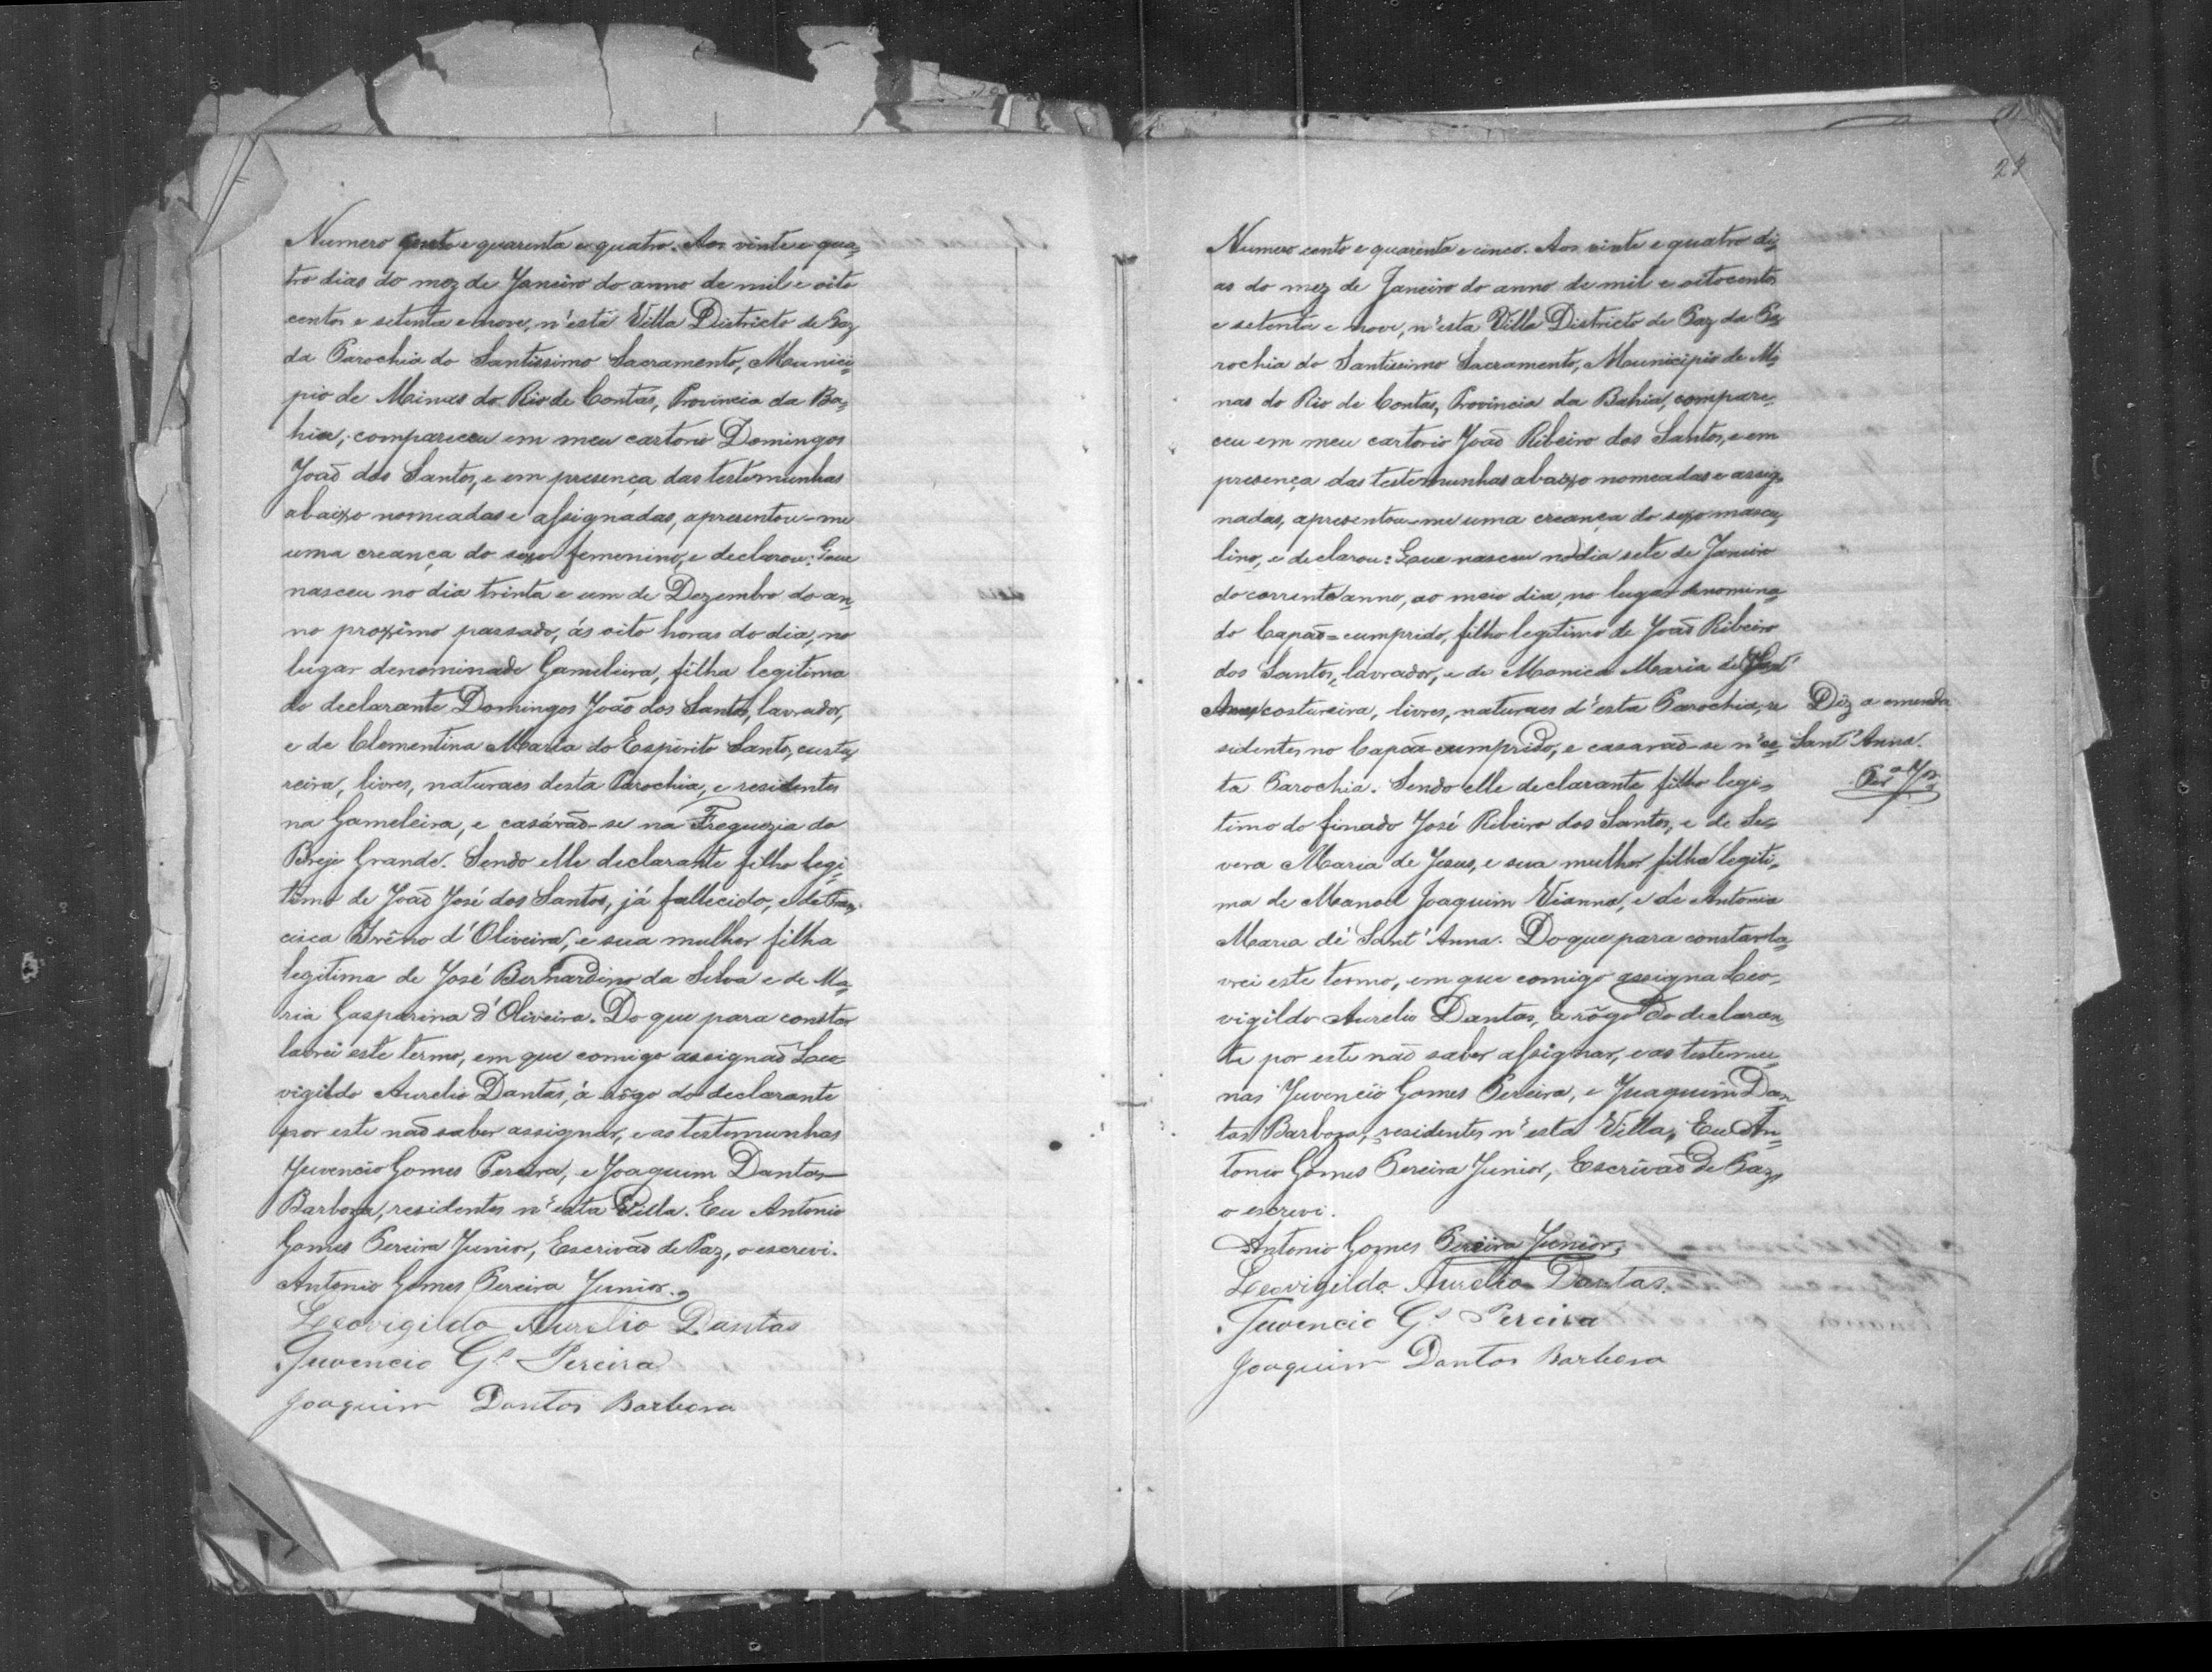 Numero cento e quarenta e quatro. Aos vinte e qua-
tro dias do mez de Janeiro do anno de mil e oito
centos e setenta e nove, n'esta Villa Districto de Paz
da Parochia do Santissimo Sacramento, Munici-
pio de Minas do Rio de Contas, Provincia da Ba-
hia, compareceu em meu cartorio Domingos
João dos Santos, e em presença das testemunhas
abaixo nomeadas e assignadas, apresentou-me
uma creança do sexo femenino, e declarou: Que
nasceu no dia trinta e um de Dezembro do an-
no proximo passado, ás oito horas do dia, no
lugar denominado Gameleira, filha legitima
do declarante Domingos João dos Santos, lavrador,
e de Clementina Maria do Espirito Santo, custu-
reira, livres, naturaes desta Parochia, e residentes
na Gameleira, e casárão-se na Freguezia do
Brejo Grande. Sendo elle declarante filho legi-
timo de João José dos Santos, já fallecido, e de Fran-
cisca d'Oliveira, e sua mulher filha
legitima de José Bernardino da Silva e de Ma-
ria Gasparina d'Oliveira. Do que para constar
lavrei este termo, em que comigo assignão Leo-
vigildo Aurelio Dantas, á rôgo do declarante
por este não saber assignar, e as testemunhas
Juvencio Gomes Pereira, e Joaquim Dantas
Barboza, residentes n'esta Villa. Eu Antonio
Gomes Pereira Junior, Escrivão de Paz, o escrevi.
Antonio Gomes Pereira Junior.
Leovigildo Aurelio Dantas
Juvencio G.s Pereira
Joaquim Dantas Barbosa
Numero cento e quarenta e cinco. Aos vinte e quatro di-
as do mez de Janeiro do anno de mil e oitocentos
e setenta e nove, n'esta Villa Districto de Paz da Pa-
rochia do Santissimo Sacramento, Municipio de Mi-
nas do Rio de Contas, Provincia da Bahia, compare-
ceu em meu cartorio João Ribeiro dos Santos, e em
presença das testemunhas abaixo nomeadas e assig-
nadas, apresentou-me uma creança do sexo mascu-
lino, e declarou: Que nasceu no dia sete de Janeiro
do corrente anno, ao meio dia, no lugar denomina-
do Capão-cumprido, filho legitimo de João Ribeiro
dos Santos, lavrador, e de Monica Maria de Sant'
Anna, costureira, livres, naturaes d'esta Parochia, re
sidentes no Capão cumprido, e casarão-se n'es-
ta Parochia. Sendo elle declarante filho legi-
timo do finado José Ribeiro dos Santos, e de Se-
vera Maria de Jesus, e sua mulher filha legiti-
ma de Manoel Joaquim Vianna, e de Antonia
Maria de Sant'Anna. Do que para constar la-
vrei este termo, em que comigo assigna Leo-
vigildo Aurelio Dantas, a rôgo do declaran-
te por este não saber assignar, e as testemu-
nas Juvencio Gomes Pereira, e Juaquim Dan
tas Barboza, residentes n'esta Villa, Eu An-
tonio Gomes Pereira Junior, Escrivão de Paz,
o escrevi.
Antonio Gomes Pereira Junior.
Leovigildo Aurelio Dantas.
Juvencio G.s Pereira
Joaquim Dantas Barbosa
Diz a emenda
Sant'Anna.